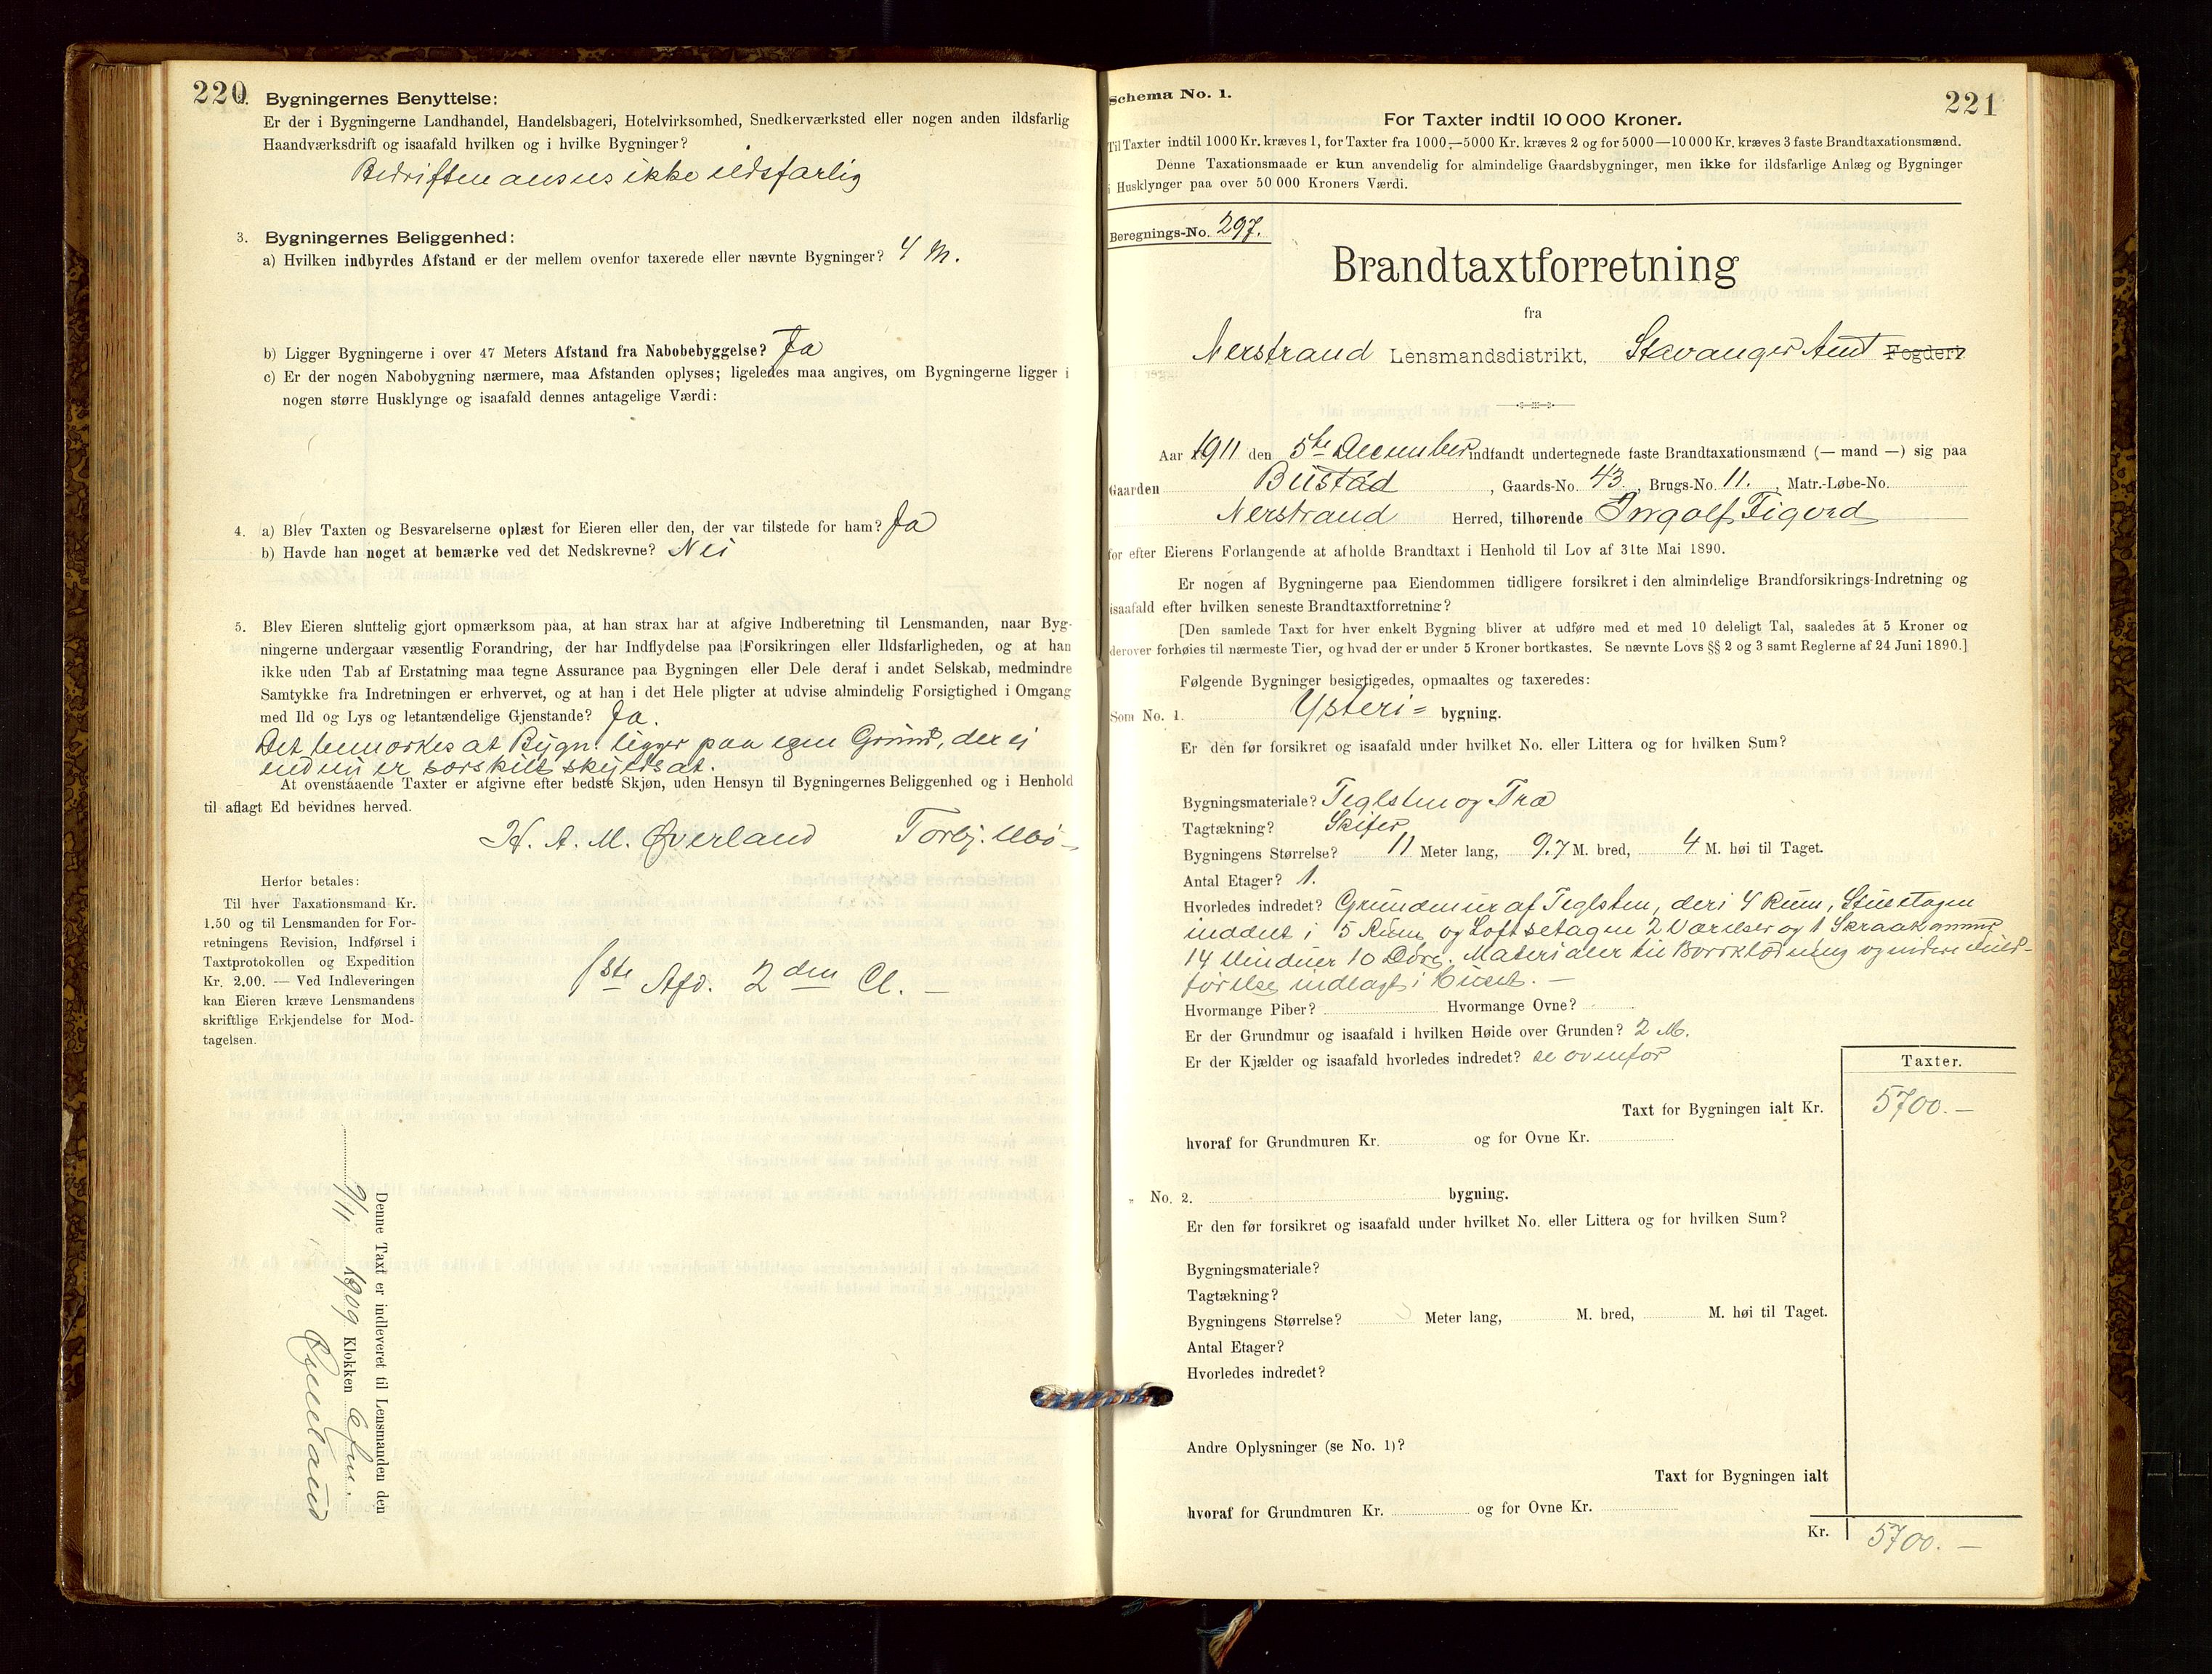 220
2. Bygningernes Benyttelse:
Er der i Bygningerne Landhandel, Handelsbageri, Hotelvirksomhed, Snedkerværksted eller nogen anden ildsfarlig
Haandværksdrift og isaafald hvilken og i hvilke Bygninger?
Bedriften anses ikke ildsfarlig
3. Bygningernes Beliggenhed:
a) Hvilken indbyrdes Afstand er der mellem ovenfor taxerede eller nævnte Bygninger? 4 M.
b) Ligger Bygningerne i over 47 Meters Afstand fra Nabobebyggelse? Ja
c) Er der nogen Nabobygning nærmere, maa Afstanden oplyses; ligeledes maa angives, om Bygningerne ligger i
nogen større Husklynge og isaafald dennes antagelige Værdi:
4. a) Blev Taxten og Besvarelserne oplæst for Eieren eller den, der var tilstede for ham? Ja
b) Havde han noget at bemærke ved det Nedskrevne? Nei
5. Blev Eieren sluttelig gjort opmærksom paa, at han strax har at afgive Indberetning til Lensmanden, naar Byg-
ningerne undergaar væsentlig Forandring, der har Indflydelse paa Forsikringen eller Ildsfarligheden, og at han
ikke uden Tab af Erstatning maa tegne Assurance paa Bygningen eller Dele deraf i andet Selskab, medmindre
Samtykke fra Indretningen er erhvervet, og at han i det Hele pligter at udvise almindelig Forsigtighed i Omgang
med Ild og Lys og letantændelige Gjenstande? Ja.
Det bemærkes at Bygn. ligger paa egen Grund, der ei
endnu er særskilt skyldsat.
At ovenstaaende Taxter er afgivne efter bedste Skjøn, uden Hensyn til Bygningernes Beliggenhed og i Henhold
til aflagt Ed bevidnes herved.
H. A. M. Øverland Torbj.
Herfor betales:
Til hver Taxationsmand Kr.
1.50 og til Lensmanden for For-
retningens Revision, Indførsel i
Taxtprotokollen og Expedition
Kr. 2.00. — Ved Indleveringen
kan Eieren kræve Lensmandens
skriftlige Erkjendelse for Mod-
tagelsen.
1ste Afd. 2den Cl. —
Denne Taxt er indleveret til Lensmanden den
9/11 1909 Klokken Efm.
221
Schema No. 1.
For Taxter indtil 10 000 Kroner.
Til Taxter indtil 1000 Kr. kræves 1, for Taxter fra 1000—5000 Kr. kræves 2 og for 5000—10 000 Kr. kræves 3 faste Brandtaxationsmænd.
Denne Taxationsmaade er kun anvendelig for almindelige Gaardsbygninger, men ikke for ildsfarlige Anlæg og Bygninger
i Husklynger paa over 50 000 Kroners Værdi.
Beregnings-No. 297.
Brandtaxtforretning
fra
Nerstrand Lensmandsdistrikt, Stavanger Amt Fogderi
Aar 1911 den 5te December indfandt undertegnede faste Brandtaxationsmænd (— mand —) sig paa
Gaarden Bustad, Gaards-No. 43, Brugs-No. 11., Matr.-Løbe-No.
Nerstrand Herred, tilhørende Ingolf Tigerd
for efter Eierens Forlangende at afholde Brandtaxt i Henhold til Lov af 31te Mai 1890.
Er nogen af Bygningerne paa Eiendommen tidligere forsikret i den almindelige Brandforsikrings-Indretning og
isaafald efter hvilken seneste Brandtaxtforretning?
[Den samlede Taxt for hver enkelt Bygning bliver at udføre med et med 10 deleligt Tal, saaledes at 5 Kroner og
derover forhøies til nærmeste Tier, og hvad der er under 5 Kroner bortkastes. Se nævnte Lovs §§ 2 og 3 samt Reglerne af 24 Juni 1890.]
Følgende Bygninger besigtigedes, opmaaltes og taxeredes:
Som No. 1. Ysteri= bygning.
Er den før forsikret og isaafald under hvilket No. eller Littera og for hvilken Sum?
Bygningsmateriale? Teglsten og Træ
Tagtækning? Skifer
Bygningens Størrelse? 11 Meter lang, 9.7 M. bred, 4 M. høi til Taget.
Antal Etager? 1.
Hvorledes indredet? Grundmur af Teglsten, deri 4 Rum, Stueetagen
inddelt i 5 Rum og Loftsetagen 2 Værelser og 1 Skraakammer
14 Vinduer 10 Døre. Materialer til Bordklædning og indre
førelse indlagt i Huset. —
Hvormange Piber? Hvormange Ovne?
Er der Grundmur og isaafald i hvilken Høide over Grunden? 2 M.
Er der Kjælder og isaafald hvorledes indredet? se ovenfor
Taxter.
Taxt for Bygningen ialt Kr. 5700. —
hvoraf for Grundmuren Kr. og for Ovne Kr.
„ No. 2. bygning.
Er den før forsikret og isaafald under hvilket No. eller Littera og for hvilken Sum?
Bygningsmateriale?
Tagtækning?
Bygningens Størrelse? Meter lang, M. bred, M. høi til Taget.
Antal Etager?
Hvorledes indredet?
Andre Oplysninger (se No. 1)?
Taxt for Bygningen ialt
hvoraf for Grundmuren Kr. og for Ovne Kr.
Kr. 5700. —